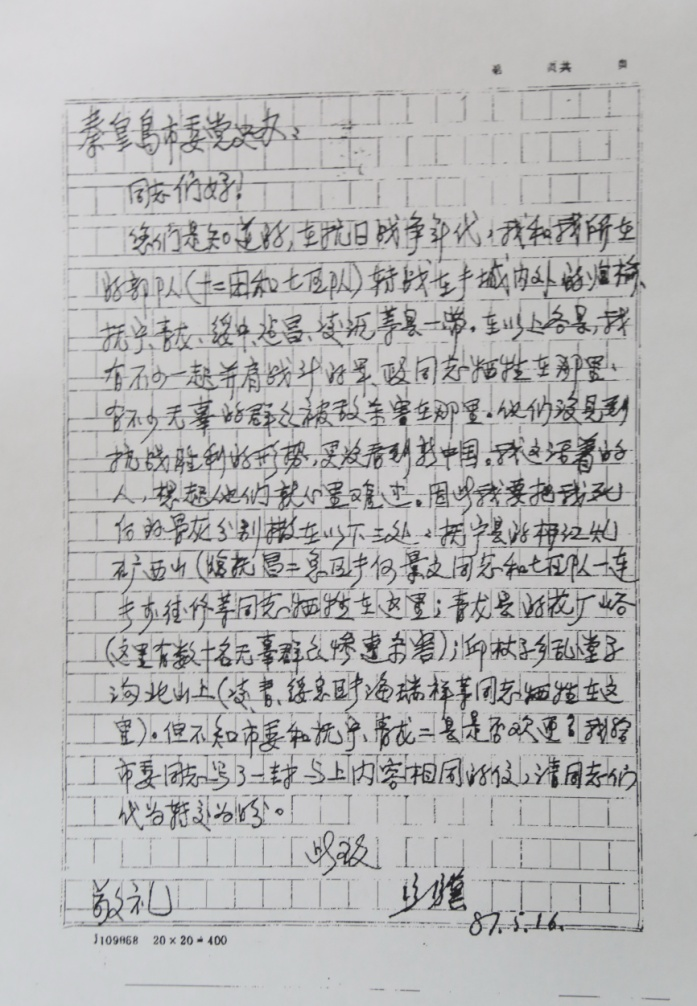 第 页共 页
秦皇岛市委党史办：
同志们好！
你们是知道的，在抗日战争年代，我和我所在
的部队（十二团和七区队）转战在长城内外的临榆、
抚宁、青龙、绥中、迁昌、凌源等县一带。在以上各县，我
有不少一起并肩战斗的军、政同志牺牲在那里，
有不少无辜的群众被敌杀害在那里。他们没见到
抗战胜利的形势，更没看到新中国。我这活着的
人，想起他们就心里难过。因此我要把我死
后的骨灰分别撒在以下三处：抚宁县的
石广西山（临抚昌二总区长何景文同志和七区队一连
长 等同志牺牲在这里；青龙县的花厂峪
（这里有数十名无辜群众惨遭杀害）；邱杖子乡乱堂子
沟北山上（凌青绥总区长海瑞祥等同志牺牲在这
里）。但不知市委和抚宁、青龙二县是否欢迎？我给
市委同志写了一封与上内容相同的信，请同志们
代为转交为盼。
此致
敬礼
骥
87.5.16.
J109068 20×20=400